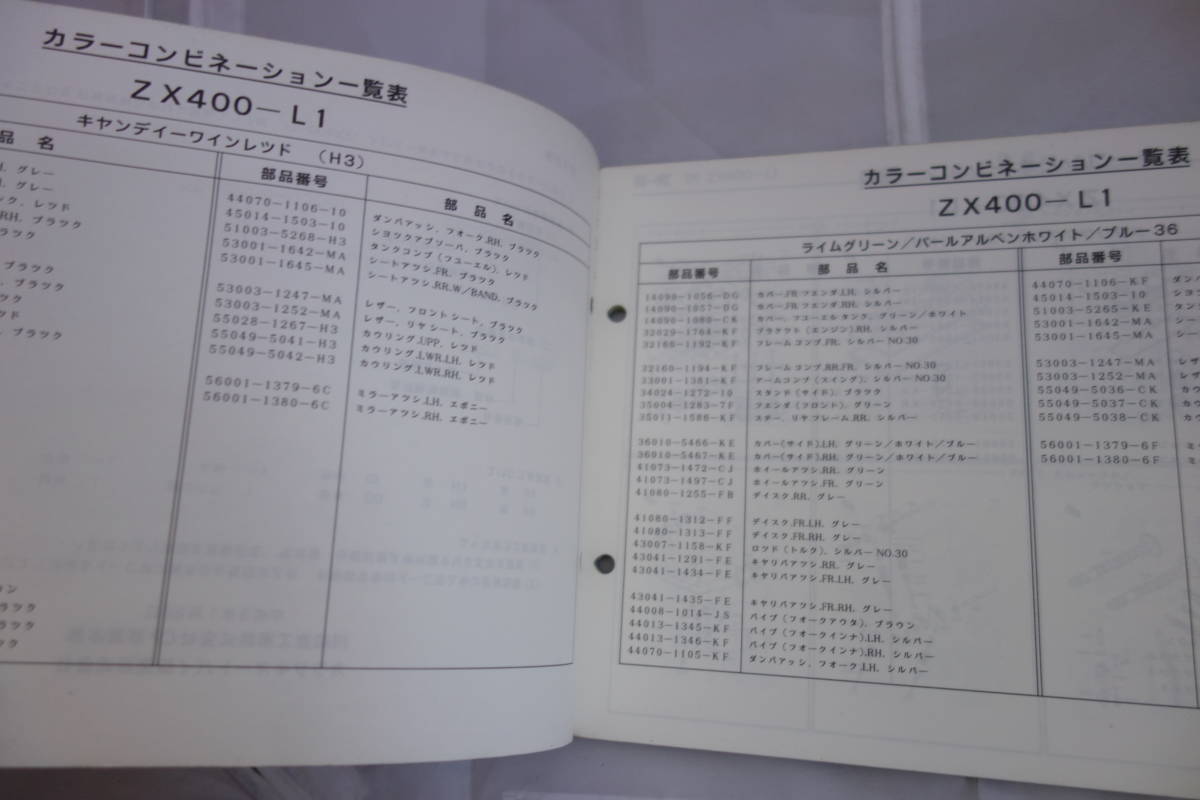 カラーコンビネーション一覧表
ZX400-L1
キヤンディーワインレツド (H3)
品 名 部品番号 部 品 名
グレー 44070-1106-10 ダンパアッシ, フオーク,RH, ブラック
グレー 45014-1503-10 シヨツクアブソーバ, ブラック
レッド 51003-5268-H3 タンクコンプ (フユーエル), レッド
RH, ブラック 53001-1642-MA シートアツシ,FR, ブラック
ラック 53001-1645-MA シートアツシ,RR,W/BAND, ブラック
ブラック 53003-1247-MA レザー, フロントシート, ブラック
ブラック 53003-1252-MA レザー, リヤシート, ブラック
55028-1267-H3 カウリング,UPP, レッド
55049-5041-H3 カウリング,LWR,LH, レッド
ブラック 55049-5042-H3 カウリング,LWR,RH, レッド
56001-1379-6C ミラーアツシ,LH, エボニー
56001-1380-6C ミラーアツシ,RH, エボニー
ブラック
カラーコンビネーション一覧表
ZX400-L1
ライムグリーン/パールアルペンホワイト/ブルー36
部品番号 部 品 名 部品番号
14090-1056-DG カバー,FR,フエンダ,LH, シルバー 44070-1106-KF
14090-1057-DG カバー,FR,フエンダ,RH, シルバー 45014-1503-10
14090-1080-CK カバー, フユーエルタンク, グリーン/ホワイト 51003-5265-KE
32029-1764-KF ブラケツト (エンジン),RH, シルバー 53001-1642-MA
32160-1192-KF フレームコンプ,FR, シルバー NO.30 53001-1645-MA
32160-1194-KF フレームコンプ,RR,FR, シルバー NO.30 53003-1247-MA
33001-1381-KF アームコンプ (スイング), シルバー NO.30 53003-1252-MA
34024-1272-10 スタンド (サイド), ブラック 55049-5036-CK
35004-1283-7F フエンダ (フロント), グリーン 55049-5037-CK
35011-1586-KF ステー, リヤフレーム,RR, シルバー 55049-5038-CK
36010-5466-KE カバー(サイド),LH, グリーン/ホワイト/ブルー 56001-1379-6F
36010-5467-KE カバー(サイド),RH, グリーン/ホワイト/ブルー 56001-1380-6F
41073-1472-CJ ホイールアツシ,RR, グリーン
41073-1497-CJ ホイールアツシ,FR, グリーン
41080-1255-FB ディスク,RR, グレー
41080-1312-FF ディスク,FR,LH, グレー
41080-1313-FF ディスク,FR,RH, グレー
43007-1158-KF ロツド (トルク), シルバー NO.30
43041-1291-FE キヤリパアツシ,RR, グレー
43041-1434-FE キヤリパアツシ,FR,LH, グレー
43041-1435-FE キヤリパアツシ,FR,RH, グレー
44008-1014-JS パイプ (フオークアウタ), ブラウン
44013-1345-KF パイプ (フオークインナ),LH, シルバー
44013-1346-KF パイプ (フオークインナ),RH, シルバー
44070-1105-KF ダンパアッシ, フオーク,LH, シルバー